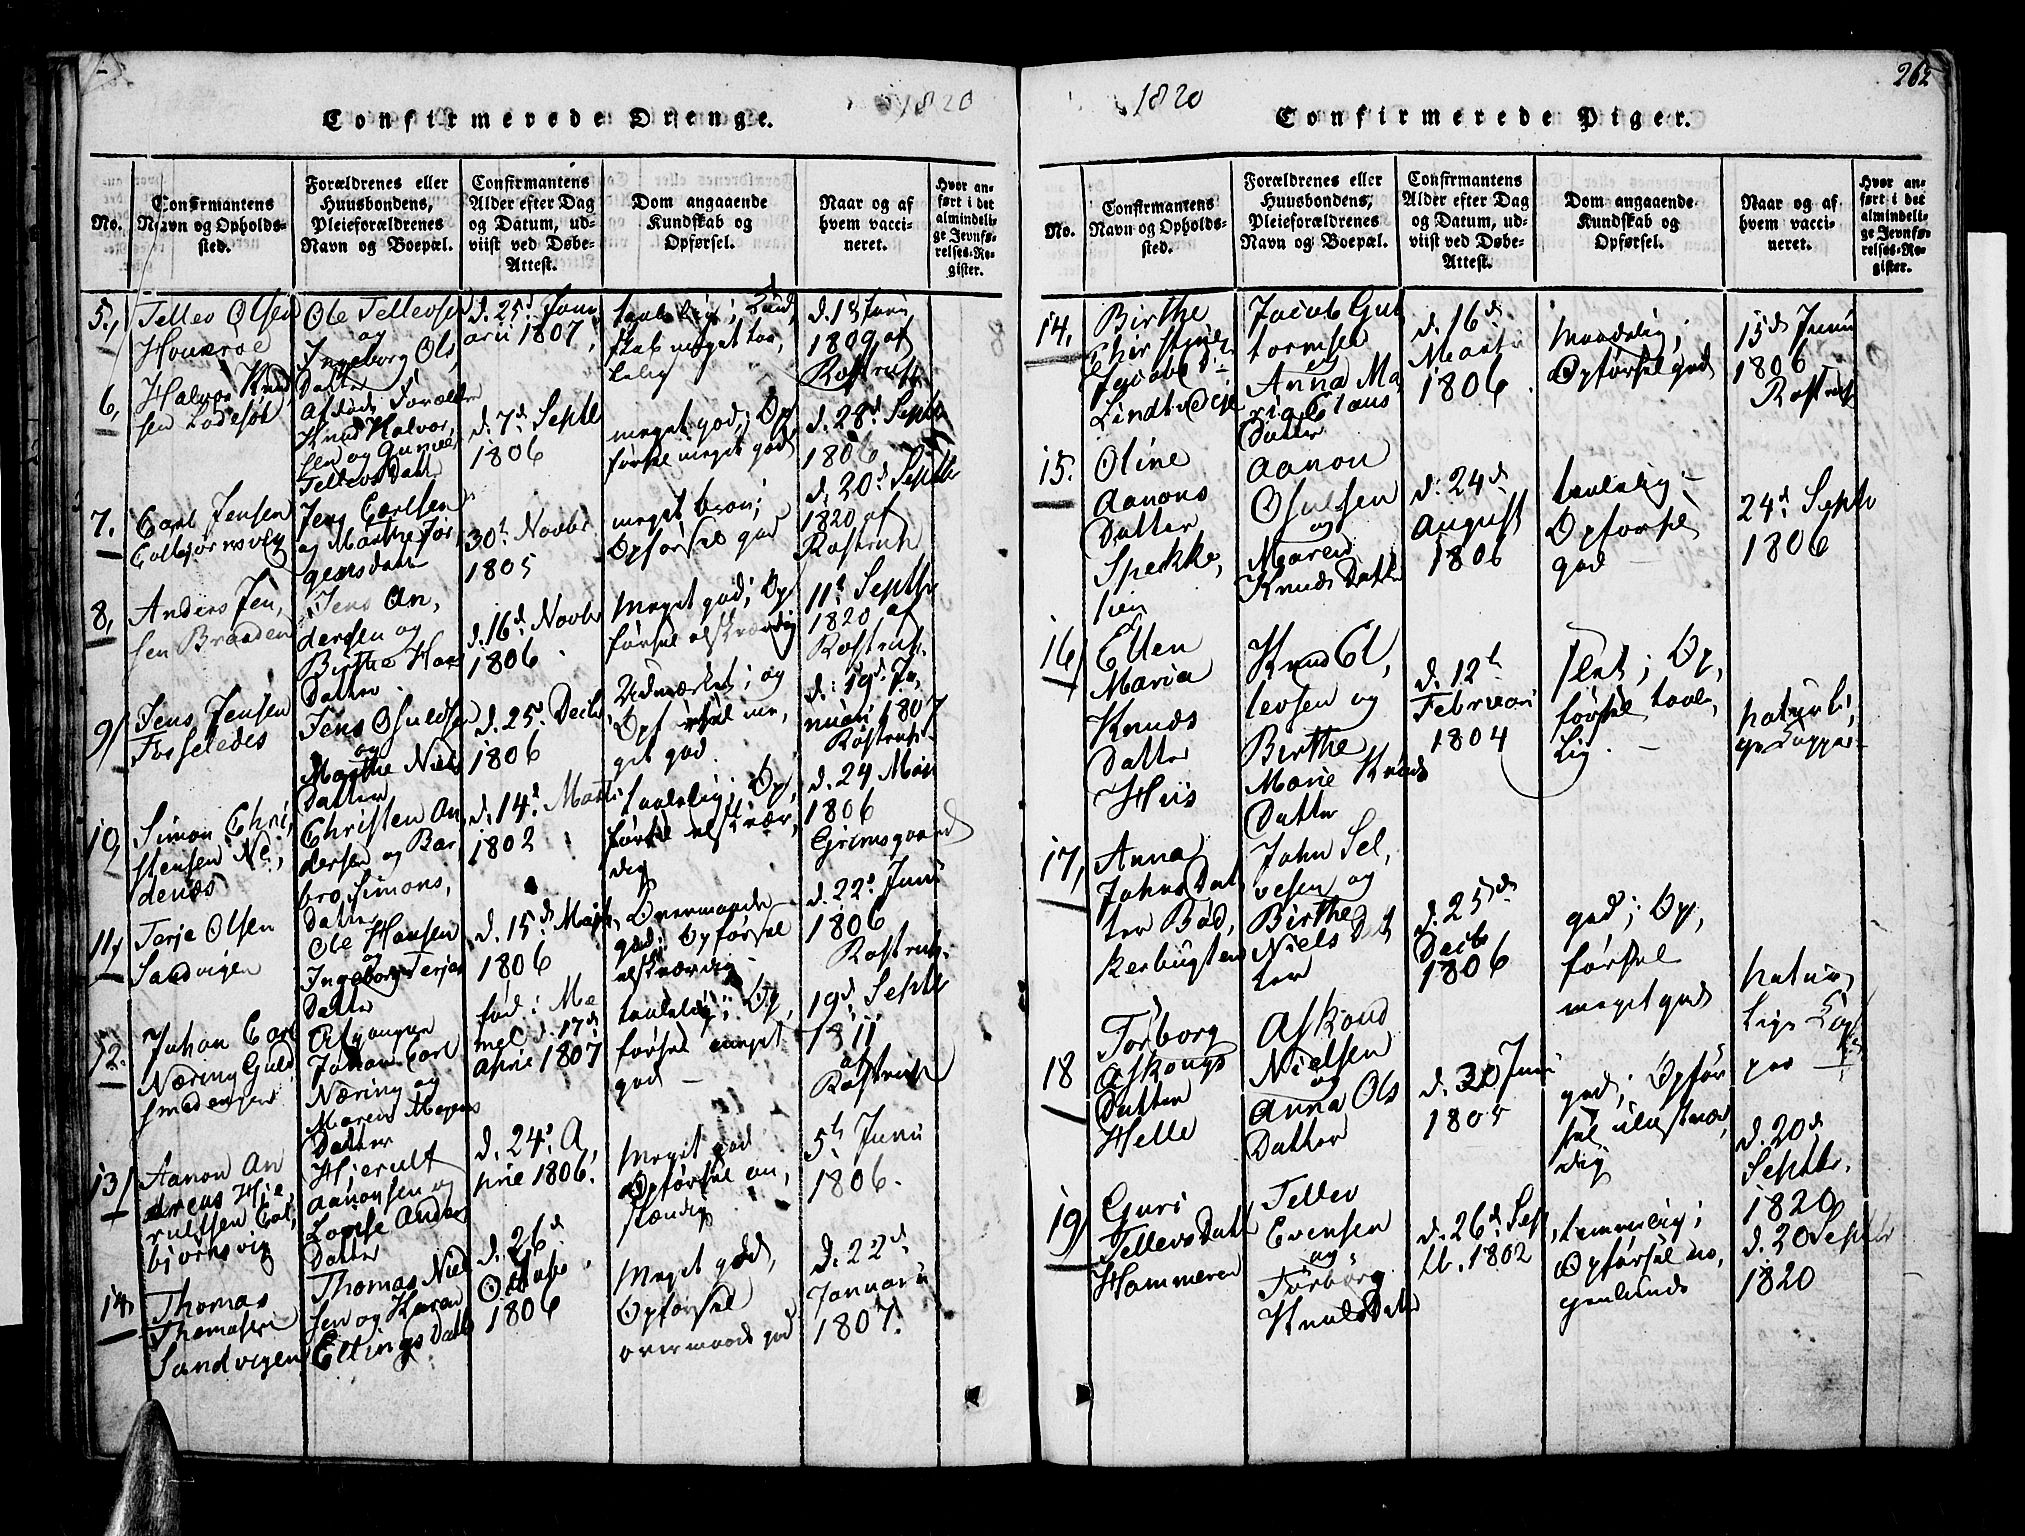 1820
Confirmerede Drenge.
No.
Confirmantens Navn og Opholds-sted.
Forældrenes eller Huusbondens, Pleieforældrenes Navn og Boepæl.
Confirmantens Alder efter Dag og Datum, ud-viist ved Døbe-Attest.
Dom angaaende Kundskab og Opførsel.
Naar og af hvem vacci-neret.
Hvor an-ført i det almindeli-ge Jevnfø-relses-Re-gister.
5,
Tellev Olsen
Ole Tellevsen
og
Ingeborg Ols
Datter
d. 25d Janu
arii 1807,
1809 af
Rostrup
6,
Halvor Knud
sen
afdøde Foræld
Knud Halvor,
sen og Gunild
Tellevs Datt
d. 7d Septb
1806
meget god; Op
førsel meget god
d. 28d Septbr
1806
7.
Carl Jensen
Colbjørnsvig
Jens Carlsen
og Marthe Jør
gensdatr
30t Novbr
1805
meget brav;
Opførsel god
d. 20d Septbr
1820 af
Rostrup
8,
Anders Jen,
sen Braaden
Jens An,
dersen og
Birthe Hans
Datter
d. 16d Novbr
1806
Meget god; Op
førsel elskværdig
11t Septbr
1820 af
Rostrup.
9,
Jens Jensen
Jens Osuldsen
og
Marthe Niels
Datter
d. 25d Decbr
1806
Udmærket; og
Opførsel me,
get god.
d. 19d Ja,
nuari 1807
Rostrup
10,
Simon Chri,
stensen Ne,
denæs
Christen An,
dersen og Bar
bro Simons,
Datter
d. 14d Marti
1802
taalelig; Op,
førsel elskvær,
dig
d. 24 Maii
1806
Grimsgaard
11,
Terje Olsen
Sandvigen
Ole Hansen
og
Ingeborg Terjes
Datter
d. 15d Maji
1806
Overmaade
god; Opførsel
elskværdig
d. 22d Junii
1806
Rostrup.
12.
Johan Carl
Næring Guld
smedengen
Afgangne
Johan Carl
Næring og
Maren Mogens
Datter
fød i Me
mel d. 17d
April 1807
taalelig; Op,
førsel meget
god —
19d Septbr
1811
af
Rostrup
13,
Aanon An
dreas Hie
rultsen Col,
bjørnsvig
Hierult
Aanonsen og
Lovise Anders
Datter
d. 24d A,
pril 1806.
Meget god
Opførsel an,
stændig
5t Junii
1806.
14,
Thomas
Thomasen
Sandvigen
Thomas Niel
sen og Karen
Ellings Datt
d. 26d
Octobr
1806
Meget god,
Opførsel
overmaade god
d. 22d
Januarii
1807.
262
1820
Confirmerede Piger.
No.
Confirmantens Navn og Opholds-sted.
Forældrenes eller Huusbondens, Pleieforældrenes Navn og Boepæl.
Confirmantens Alder efter Dag og Datum, ud-viist ved Døbe-Attest.
Dom angaaende Kundskab og Opførsel.
Naar og af hvem vacci-neret.
Hvor an-ført i det almindeli-ge Jevnfø-relses-Re-gister.
14,
Birthe
Jacobs Dr
Lindtvedeje
Jacob Gut
tormsen
og
Anna Ma
ria Claus
Datter
d. 16d
Martii
1806.
Maadelig;
Opførsel god
15d Junii
1806
Rostrup
15.
Oline
Aanons
Datter
Spekke,
lien
Aanon
Osulsen
og
Maren
Knuds Datter
d. 24d
August
1806
taalelig —
Opførsel
god —
24d Septbr
1806
16,
Ellen
Maria
Knuds
Datter
Hiis
Knud El,
levsen og
Birthe
Marie Knuds
Datter
d. 12t
Februari
1804
slet; Op,
førsel taale,
lig. —
naturli,
ge Kopper—
17,
Anna
Johns Dat
ter Bød,
kerbugten
John Sel,
vesen og
Birthe
Niels Dat
ter
d. 25d
Decbr
1806
god; Op,
førsel
meget god
natur,
lige Kop
per —
18
Torborg
Askouds
Datter
Helle
Askoud
Nielsen
og
Anna Ols
Datter
Junii
1805
god; Opfør
sel
dig
d. 20d
Septbr.
1820
19,
Guri
Tellevs Datt
Hammeren
Tellev
Evensen
og
Torborg
Knuds Datter
d. 26d Sep
tb. 1802
temmelig;
Opførsel no,
genlunde
d. 20 Septbr
1820